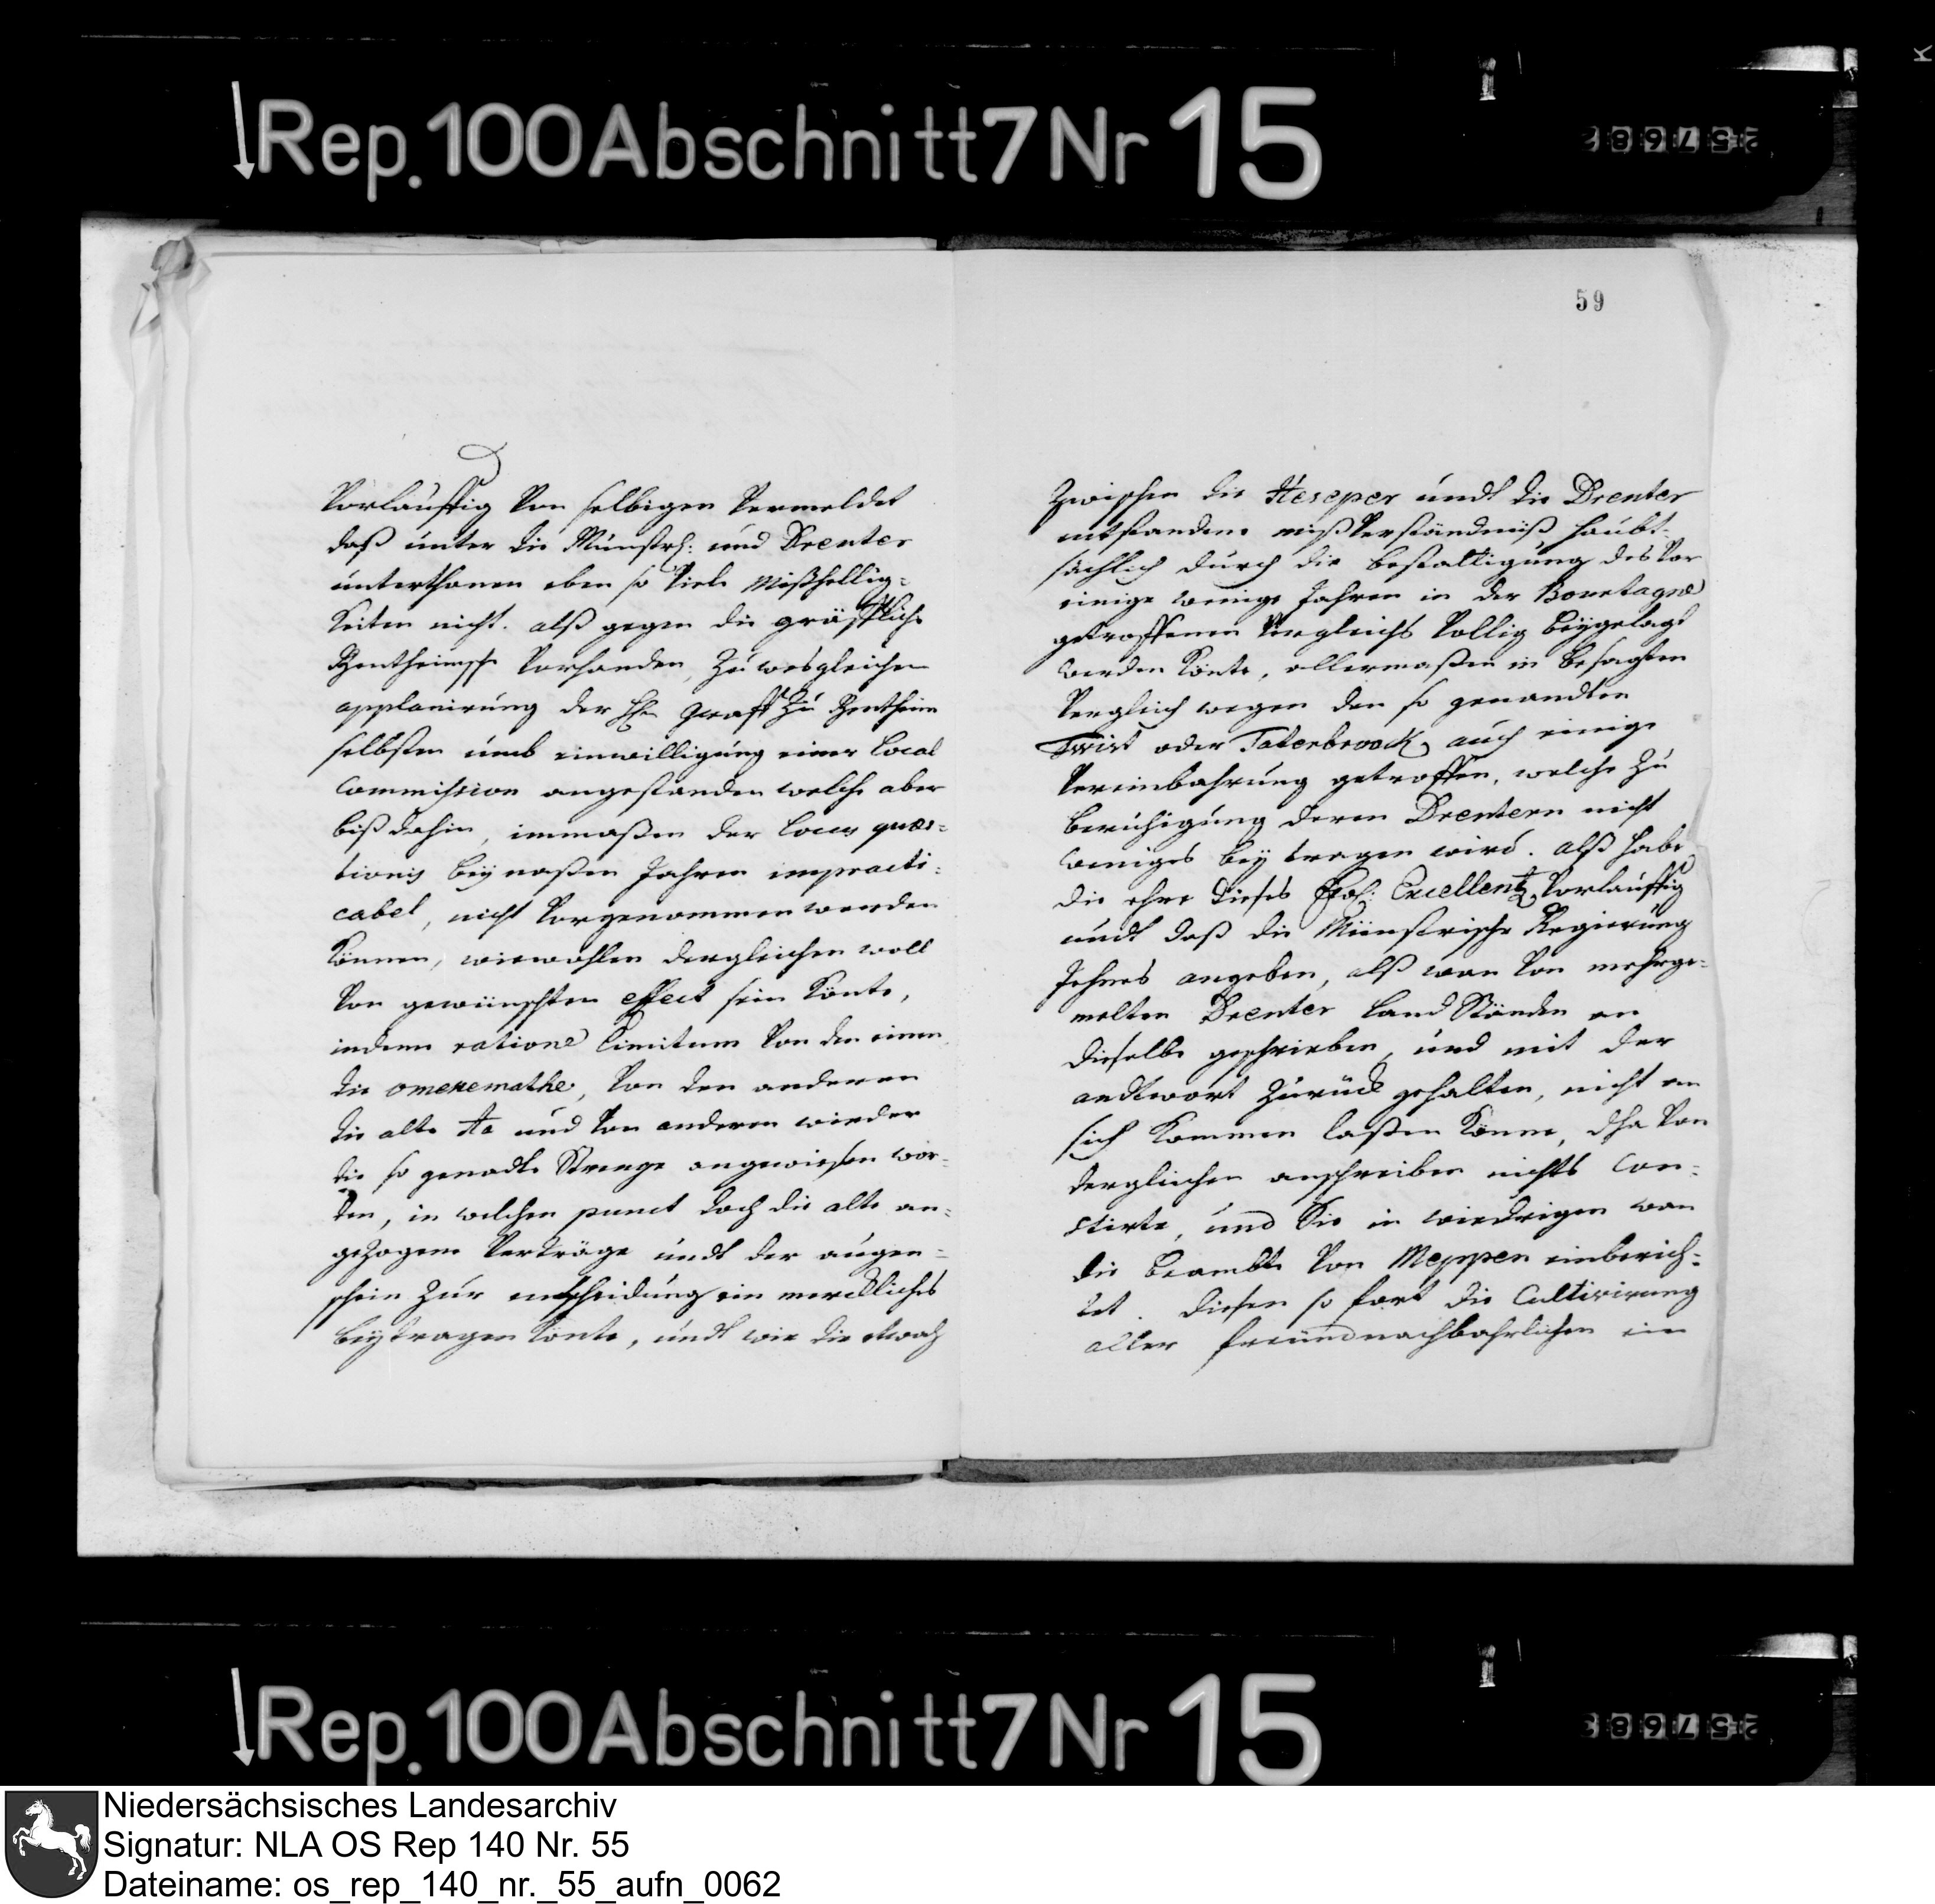 Rep. 100 Abschnitt 7 Nr 15
59
Vorlauffig von selbigen vermeldet
daß unter die Münstrl: und Drenter
unterthanen eben so viele Mißhellig=
keiten nicht. alß gegen die gräffliche
Bentheimsche vorhanden, zu wesgleichen
applanirung der HEn Graff zu Bentheim
selbsten umb einwilligung einer Local
Commission angestanden welche aber
biß dahin, immaßen der locus quæs=
tionis bey naßen Jahren impracti=
cabel, nicht vorgenommen werden
können, wiewohlen dergleichen woll
von gewünschten effect sein könte,
indem ratione limitum von den einen
die omekemathe, von den anderen
die alte Aa und von anderen wieder
die so genadte Strenge angewiesen wor=
den, in welchen punct doch die alte an=
gezogene verträge undt der augen=
schein zur entscheidung ein merckliches
beytragen könte, undt wie die etwah
Zwischen die Heseper undt die Drenter
entstandene mißverständniß haubt=
sächlich durch die bestattigung des vor
einige wenige Jahren in der Bourtagne
getroffenen vergleichs vollig beygelagt
werden könte, allermaßen in besagten
vergleich wegen den so genandten
Twist oder Takenbroock, auch einige
vereinbahrung getroffen, welche zu
beruhigung deren Drentern nicht
weniges bey tragen wird. alß habe
die ehre dieses Ewl: Excellentz vorlauffig
undt daß die Münstrische Regierung
Jehnes angeben, alß wan von mehrge=
melten Drenter Land Stände an
dieselbe geschrieben, und mit der
andtwort zurück gehalten, nicht an
sich kommen laßen könne, dha von
dergleichen anschreiben nichts con=
stirte, und Sie in wiedrigen wan
die beambte von Meppen einberich=
tet. diesen so fort die Cultivirung
aller freundnachbahrlichen ein
Rep. 100 Abschnitt 7 Nr 15
Niedersächsisches Landesarchiv
Signatur: NLA OS Rep 140 Nr. 55
Dateiname: os_rep_140_nr._55_aufn_0062